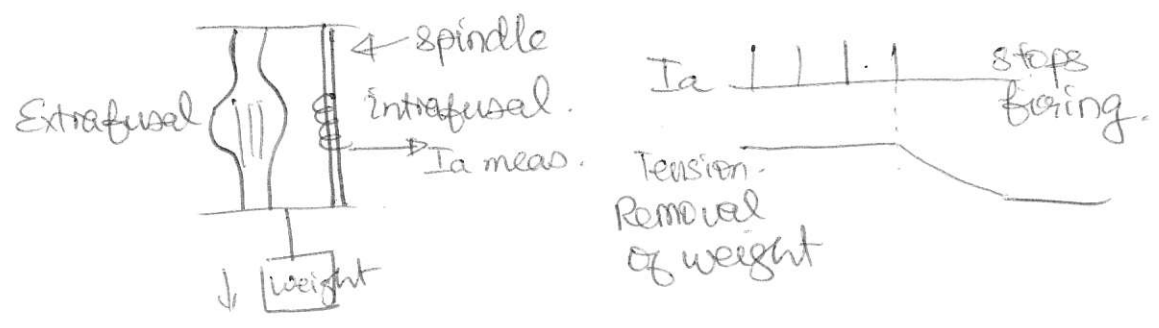 spindle
Extrafusal
intrafusal.
Ia meas.
weight
Ia
stops
firing.
Tension.
Removal
of weight